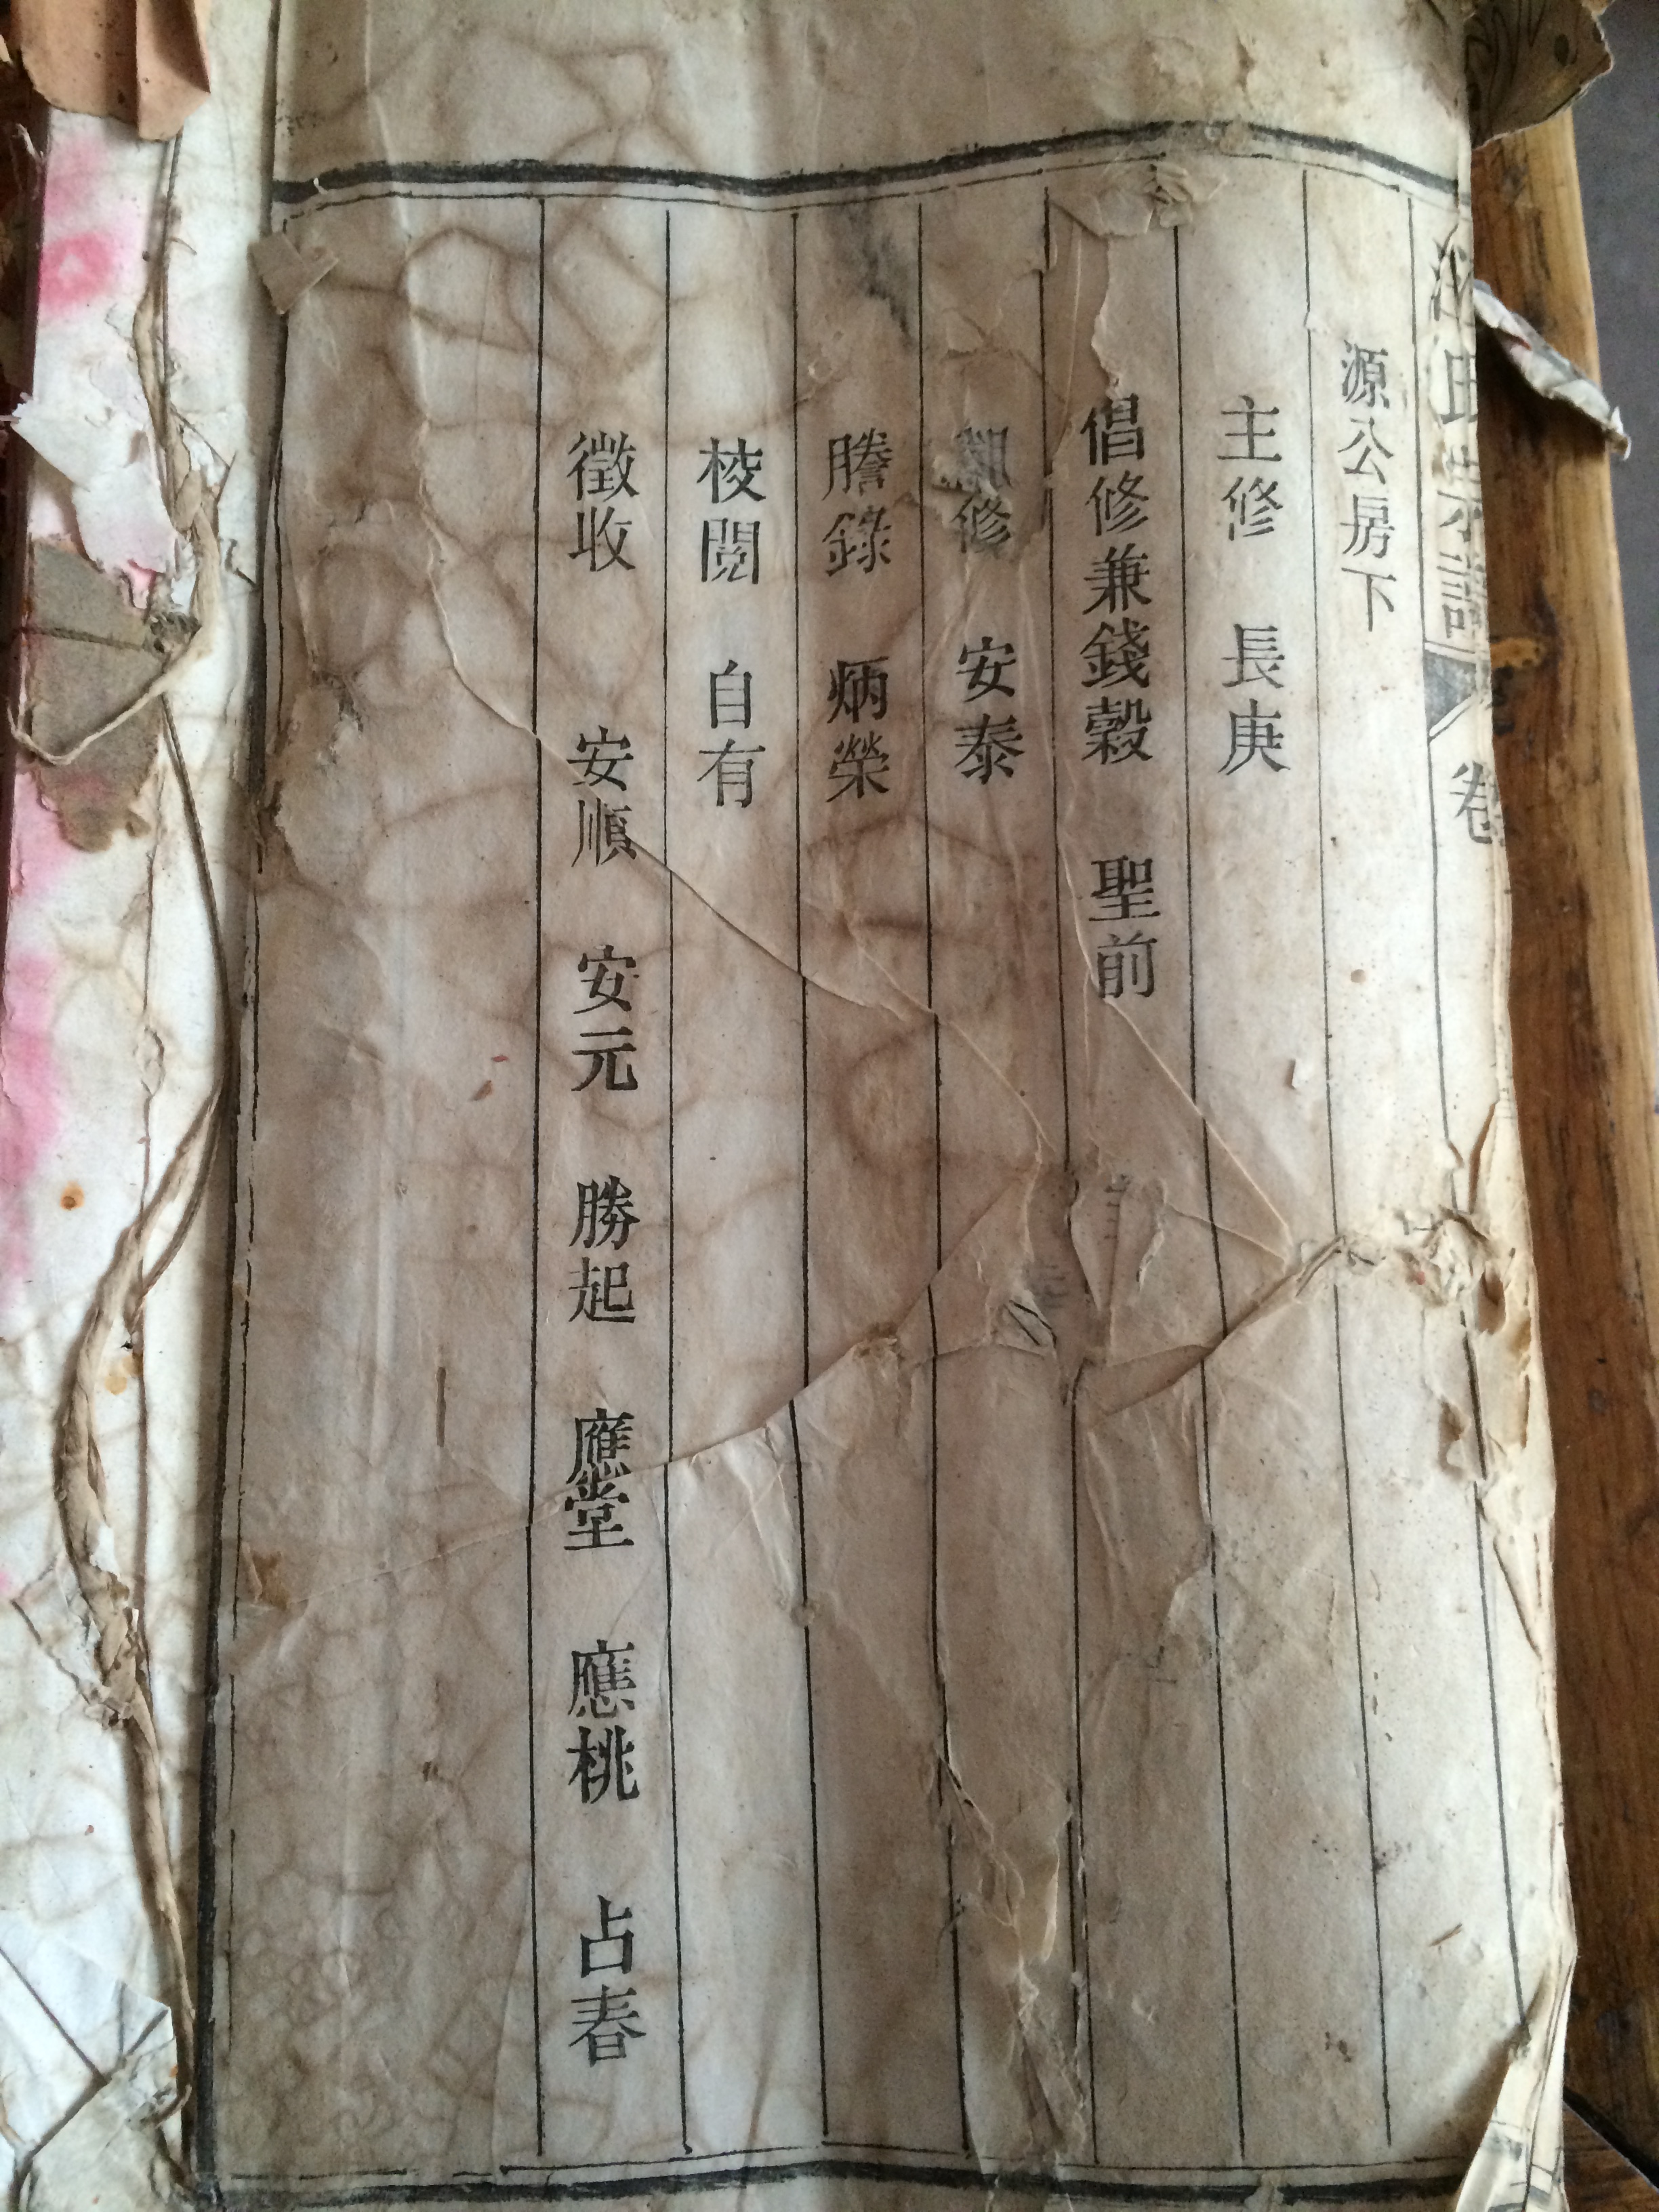 氏宗譜 卷
源公房下
主修 長庚
倡修兼錢穀 聖前
修 安泰
謄錄 炳榮
校閱 自有
徵收 安順 安元 勝起 應堂 應桃 占春